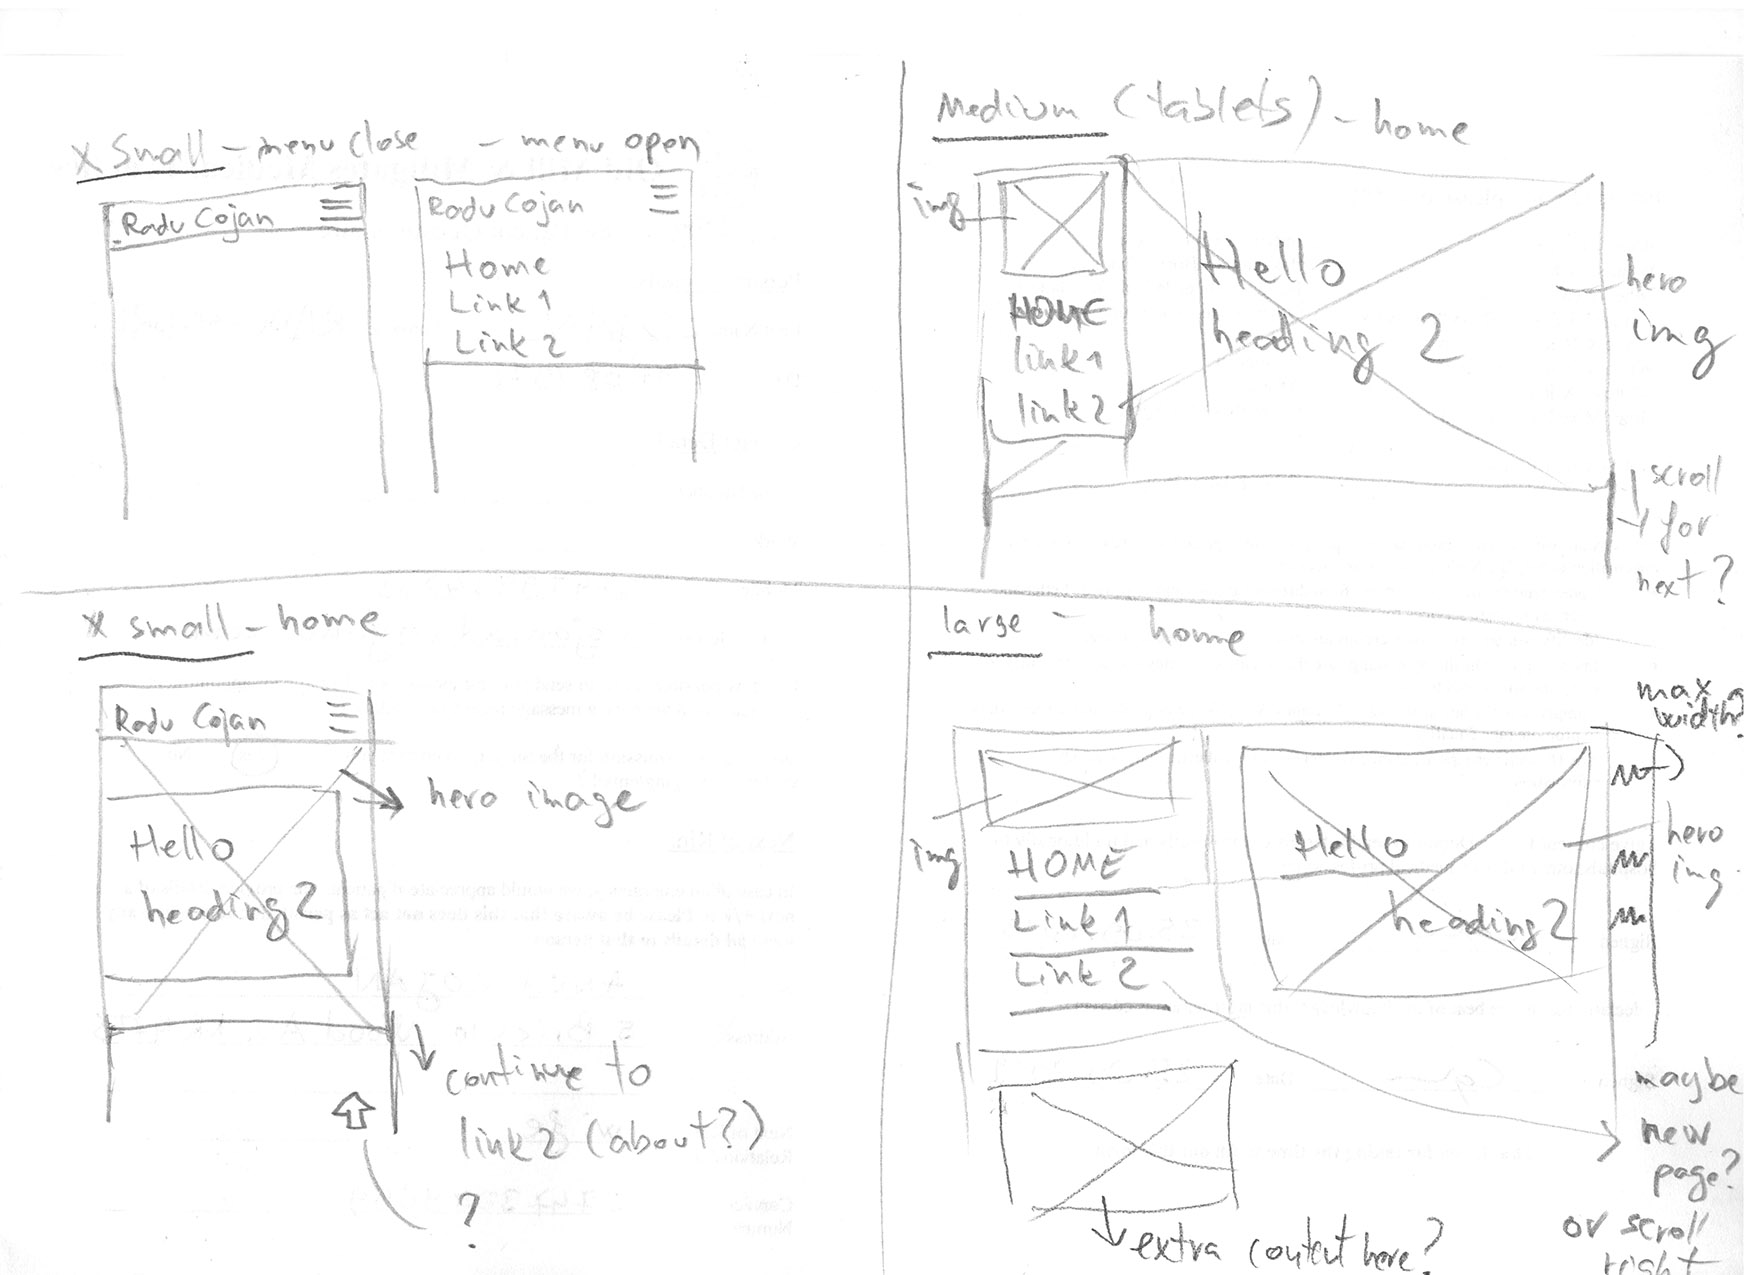 x Small - menu close - menu open
Radu Cojan
Radu Cojan
Home
Link 1
Link 2
Medium (tablets) - home
img
HOME
link 1
link 2
Hello
heading 2
hero
img
scroll
for
next?
x small - home
Radu Cojan
Hello
heading 2
hero image
continue to
link 2 (about?)
?
large - home
img
HOME
Link 1
Link 2
Hello
heading 2
max
width?
hero
img.
maybe
new
page?
or scroll
right
extra content here?